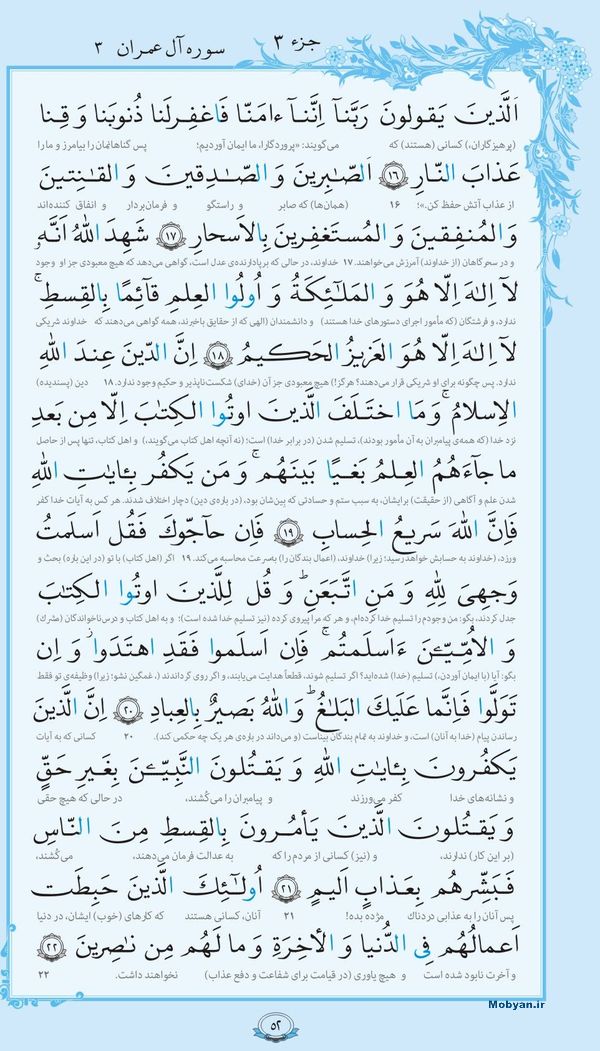 جزء ۳
سوره آل عمران ۳
اَلَّذینَ یَقولونَ رَبَّنآ اِنَّنآ ءامَنّا فَاغفِرلَنا ذُنوبَنا وَ قِنا
(پرهیزگاران،) کسانی (هستند) که می‌گویند: «پروردگارا، ما ایمان آوردیم؛ پس گناهانمان را بیامرز و ما را
عَذابَ النّارِ ۱۶ اَلصّابِرینَ وَ الصّادِقینَ وَ القانِتینَ
از عذاب آتش حفظ کن.»؛ ۱۶ (همان‌ها) که صابر و راستگو و فرمان‌بردار و انفاق کننده‌اند
وَ المُنفِقینَ وَ المُستَغفِرینَ بِالاَسحارِ ۱۷ شَهِدَ اللهُ اَنَّهو
و در سحرگاهان (از خداوند) آمرزش می‌خواهند. ۱۷ خداوند، در حالی که برپادارنده‌ی عدل است، گواهی می‌دهد که هیچ معبودی جز او وجود
لآ اِلٰهَ اِلّا هُوَ وَ المَلٰئِکَةُ وَ اُولُوا العِلمِ قآئِمًا بِالقِسطِ ۚ
ندارد، و فرشتگان (که مأمور اجرای دستورهای خدا هستند) و دانشمندان (الهی که از حقایق باخبرند، همه گواهی می‌دهند که خداوند شریکی
لآ اِلٰهَ اِلّا هُوَ العَزیزُ الحَکیمُ ۱۸ اِنَّ الدّینَ عِندَ اللهِ
ندارد. پس چگونه برای او شریکی قرار می‌دهند؟ هرگز!) هیچ معبودی جز آن (خدای) شکست‌ناپذیر و حکیم وجود ندارد. ۱۸ دین (پسندیده)
الاِسلامُ ۗ وَ مَا اختَلَفَ الَّذینَ اوتُوا الکِتٰبَ اِلّا مِن بَعدِ
نزد خدا (که همه‌ی پیامبران به آن مأمور بودند)، تسلیم شدن (در برابر خدا) است؛ (نه آنچه اهل کتاب می‌گویند)، و اهل کتاب، تنها پس از حاصل
ما جآءَهُمُ العِلمُ بَغیًا بَینَهُم ۗ وَ مَن یَکفُر بِـٔایٰتِ اللهِ
شدن علم و آگاهی (از حقیقت) برایشان، به سبب ستم و حسادتی که بین‌شان بود، (درباره‌ی دین) دچار اختلاف شدند. هر کس به آیات خدا کفر
فَاِنَّ اللهَ سَریعُ الحِسابِ ۱۹ فَاِن حآجّوکَ فَقُل اَسلَمتُ
ورزد، (خداوند به حسابش خواهد رسید؛ زیرا) خداوند، (اعمال بندگان را) به‌سرعت محاسبه می‌کند. ۱۹ اگر (اهل کتاب) با تو (در این باره) بحث و
وَجهِیَ لِلّٰهِ وَ مَنِ اتَّبَعَنِ ۗ وَ قُل لِلَّذینَ اوتُوا الکِتٰبَ
جدل کردند، بگو: من وجودم را تسلیم خدا کرده‌ام، و هر که مرا پیروی کرده (نیز تسلیم خدا شده است)؛ و به اهل کتاب و درس‌ناخواندگان (مشرک)
وَ الاُمِّیّـۧنَ ءَاَسلَمتُم ۚ فَاِن اَسلَموا فَقَدِ اهتَدَوا ۖ وَ اِن
بگو: آیا (با ایمان آوردن،) تسلیم (خدا) شده‌اید؟ اگر تسلیم شوند، قطعاً هدایت می‌یابند، و اگر روی گرداندند (، غمگین نشو؛ زیرا) وظیفه‌ی تو فقط
تَوَلَّوا فَاِنَّما عَلَیکَ البَلٰغُ ۗ وَ اللهُ بَصیرٌ بِالعِبادِ ۲۰ اِنَّ الَّذینَ
رساندن پیام (خدا به آنان) است، و خداوند به تمام بندگان بیناست (و می‌داند درباره‌ی هر یک چه حکمی کند). ۲۰ کسانی که به آیات
یَکفُرونَ بِـٔایٰتِ اللهِ وَ یَقتُلونَ النَّبِیّـۧنَ بِغَیرِ حَقٍّ
و نشانه‌های خدا کفر می‌ورزند و پیامبران را می‌کُشند، در حالی که هیچ حقی
وَ یَقتُلونَ الَّذینَ یَأمُرونَ بِالقِسطِ مِنَ النّاسِ
(بر این کار) ندارند، و (نیز) کسانی از مردم را که به عدالت فرمان می‌دهند، می‌کُشند،
فَبَشِّرهُم بِعَذابٍ اَلیمٍ ۲۱ اُولٰئِکَ الَّذینَ حَبِطَت
پس آنان را به عذابی دردناک مژده بده! ۲۱ آنان، کسانی هستند که کارهای (خوب) ایشان، در دنیا
اَعمالُهُم فِی الدُّنیا وَ الأٰخِرَةِ وَ ما لَهُم مِن نٰصِرینَ ۲۲
و آخرت نابود شده است و هیچ یاوری (در قیامت برای شفاعت و دفع عذاب) نخواهند داشت. ۲۲
Mobyan.ir
۵۲